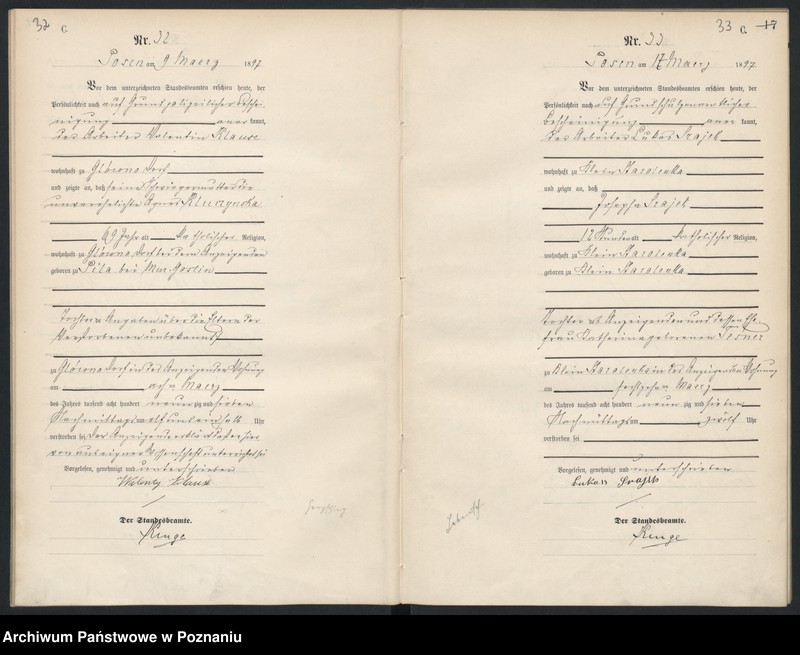 32 C.
Nr. 32
Posen am 9 Maerz 1897
Vor dem unterzeichneten Standesbeamten erschien heute, der
Persönlichkeit nach auf Grund polizeilicher Beschei-
nigung aner kannt,
der Arbeiter Valentin Klause
wohnhaft zu Glowno Dorf
und zeigte an, daß seine Schwiegermutter die
unverehelichte Agnes
69 Jahr alt katholischer Religion,
wohnhaft zu Glowno Dorf bei dem Anzeigenden
geboren zu Pila bei Mur. Goslin
Angaben über die Eltern der
Verstorbenen unbekannt
zu Glowno Dorf in des Anzeigenden Wohnung
am acht Maerz
des Jahres tausend acht hundert neun zig und sieben
Nachmittags um elf und ein halb Uhr
verstorben sei. Der Anzeigende erklärte daß er hier
von aus eigner Wissenschaft unterrichtet sei
Vorgelesen, genehmigt und unterschrieben
Der Standesbeamte.
33 C. 17
Nr. 33
Posen am 17 Maerz 1897
Vor dem unterzeichneten Standesbeamten erschien heute, der
Persönlichkeit nach auf Grund schutzmannlicher
Bescheinigung aner kannt,
der Arbeiter Lukas Srajek
wohnhaft zu Klein Starolenka
und zeigte an, daß
Josepha Srajek
12 Stunden alt katholischer Religion,
wohnhaft zu Klein Starolenka
geboren zu Klein Starolenka
Tochter des Anzeigenden und dessen Ehe
frau Katharina geborenen
zu Klein Starolenka in des Anzeigenden Wohnung
am sechszehn Maerz
des Jahres tausend acht hundert neun zig und sieben
Nachmittags um zwölf Uhr
verstorben sei
Vorgelesen, genehmigt und unterschrieben
Lukas Srajek
Der Standesbeamte.
Archiwum Państwowe w Poznaniu